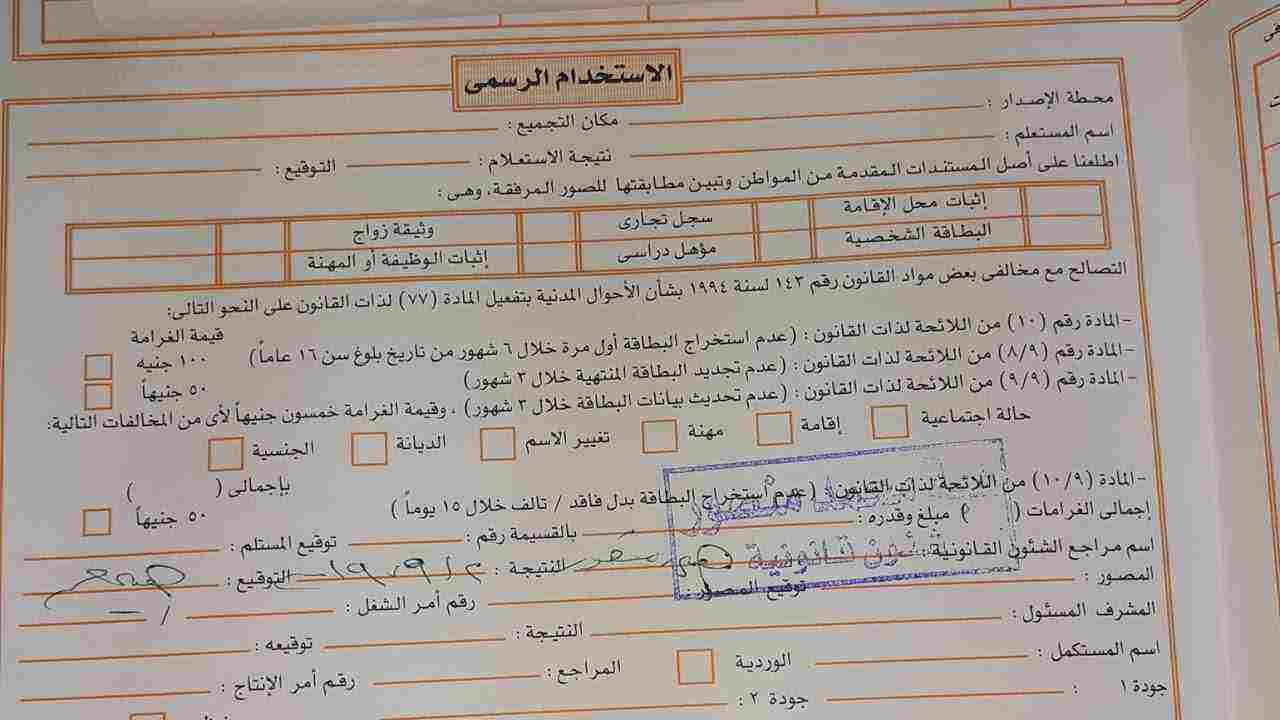 الاستخدام الرسمى
محطة الإصدار : مكان التجميع :
اسم المستعلم : نتيجة الاستعلام : التوقيع :
اطلعنا على أصل المستندات المقدمة من المواطن وتبين مطابقتها للصور المرفقة، وهى :
إثبات محل الإقامة سجل تجارى وثيقة زواج
البطاقة الشخصية مؤهل دراسى إثبات الوظيفة أو المهنة
التصالح مع مخالفى بعض مواد القانون رقم ١٤٣ لسنة ١٩٩٤ بشأن الأحوال المدنية بتفعيل المادة (٧٧) لذات القانون على النحو التالى:
قيمة الغرامة
-المادة رقم (١٠) من اللائحة لذات القانون : (عدم استخراج البطاقة أول مرة خلال ٦ شهور من تاريخ بلوغ سن ١٦ عاماً) ١٠٠ جنيه
-المادة رقم (٨/٩) من اللائحة لذات القانون : (عدم تجديد البطاقة المنتهية خلال ٣ شهور) ٥٠ جنيهاً
-المادة رقم (٩/٩) من اللائحة لذات القانون : (عدم تحديث بيانات البطاقة خلال ٣ شهور) ، وقيمة الغرامة خمسون جنيهاً لأى من المخالفات التالية:
حالة اجتماعية إقامة مهنة تغيير الاسم الديانة الجنسية
بإجمالى ( )
-المادة (١٠/٩) من اللائحة لذات القانون : (عدم استخراج البطاقة بدل فاقد / تالف خلال ١٥ يوماً ) ٥٠ جنيهاً
إجمالى الغرامات ( ) مبلغ وقدره : بالقسيمة رقم : توقيع المستلم :
اسم مراجع الشئون القانونية : النتيجة : التوقيع :
شئون قانونية
المصور : توقيع المصور : رقم أمر الشغل :
المشرف المسئول : النتيجة : توقيعه :
اسم المستكمل : الوردية المراجع : رقم أمر الإنتاج :
جودة ١ : جودة ٢ :